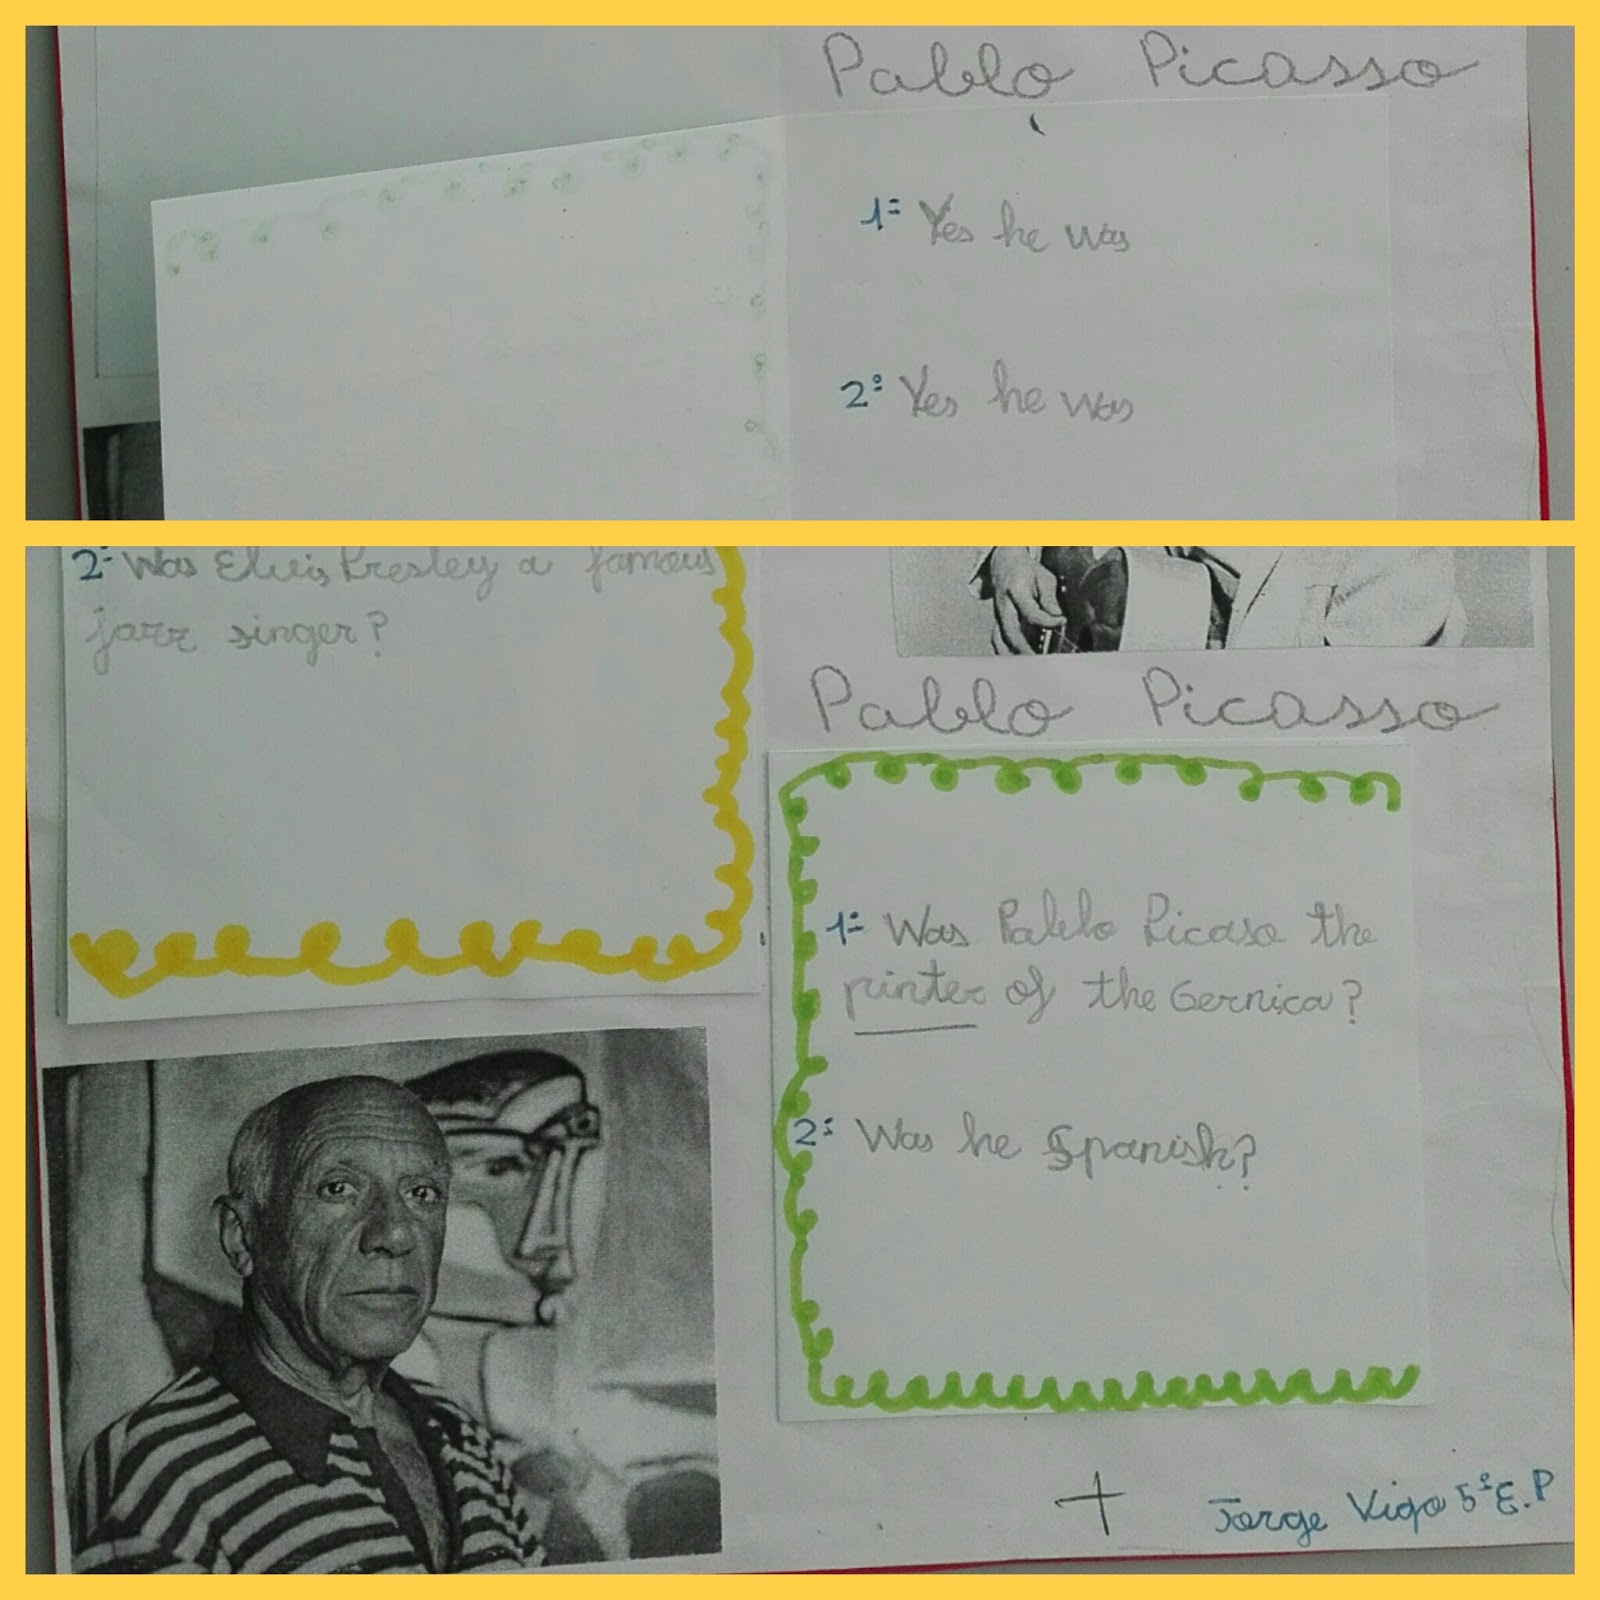 Pablo Picasso
1º Yes he was
2º Yes he was
2º Was Elvis Presley a famous
jazz singer?
Pablo Picasso
1º Was Pablo Picaso the
pinter of the Gernica?
2º Was he Spanish?
Jorge Vigo 5º E.P